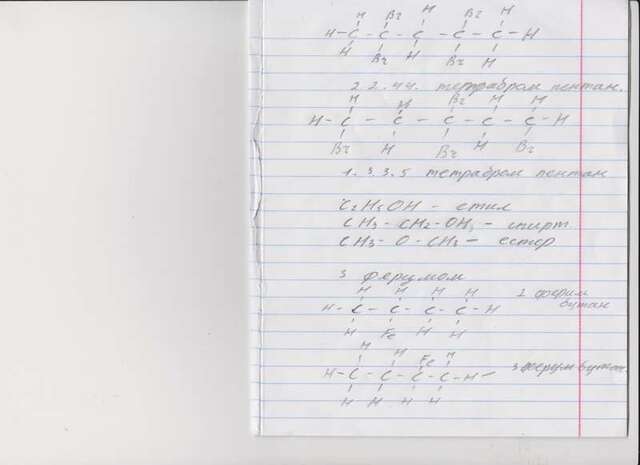 H Br H Br H
H - C - C - C - C - C - H
H Br H Br H
2.2.4.4. тетрабром пентан.
H H Br H H
H - C - C - C - C - C - H
Br H Br H Br
1.3.3.5 тетрабром пентан
C2H5OH - етил
CH3 - CH2 - OH - спирт
CH3 - O - CH3 - естер
З ферумом
H H H H
H - C - C - C - C - H
H Fe H H
2 ферум
бутан
H H Fe H
H - C - C - C - C - H
H H H H
3 ферум бутан.